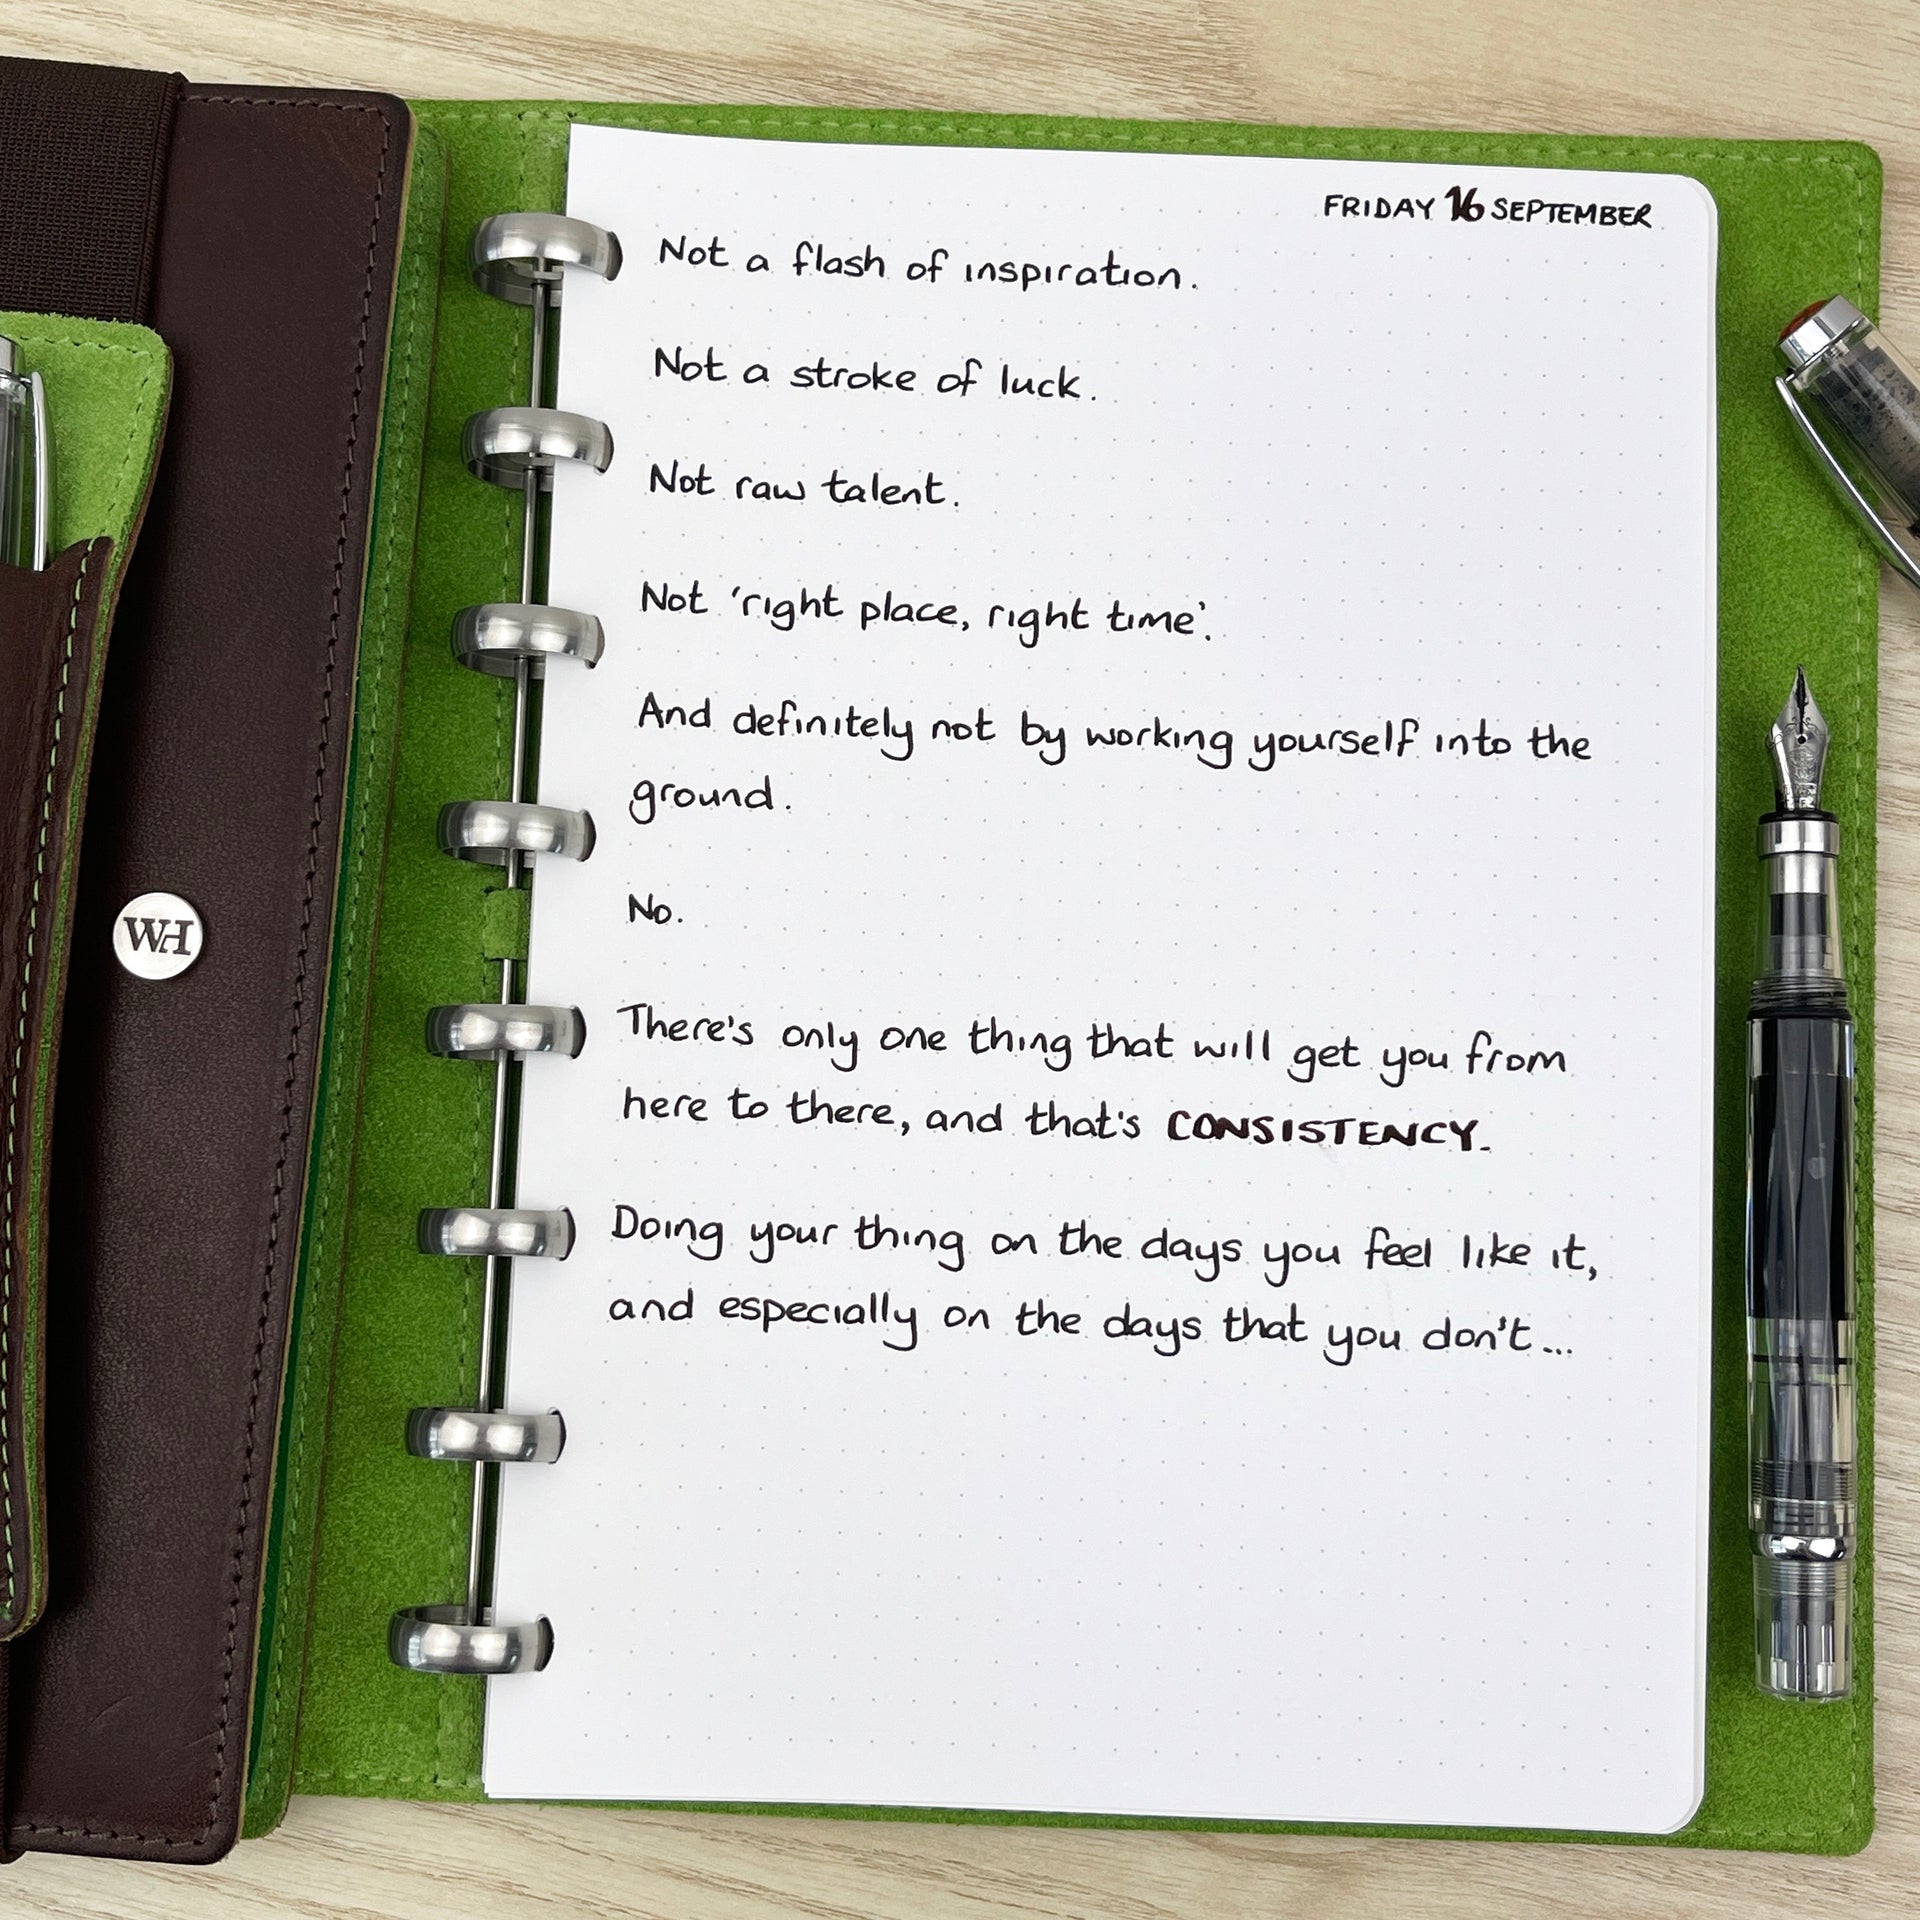 FRIDAY 16 SEPTEMBER
Not a flash of inspiration.
Not a stroke of luck.
Not raw talent.
Not 'right place, right time'.
And definitely not by working yourself into the
ground.
No.
There's only one thing that will get you from
here to there, and that's CONSISTENCY.
Doing your thing on the days you feel like it,
and especially on the days that you don't...
WH